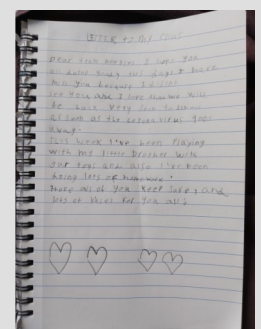 LETTER to my Class
Dear I hope you
all good these days I have
miss you because I
see you and I hope school will
be back very soon to school
as soon as the corona virus goes
away.
This week I've been playing
with my little brother with
toys and also I've been
doing lots of homework.
Hope all of you keep safe, and
lots of for you all